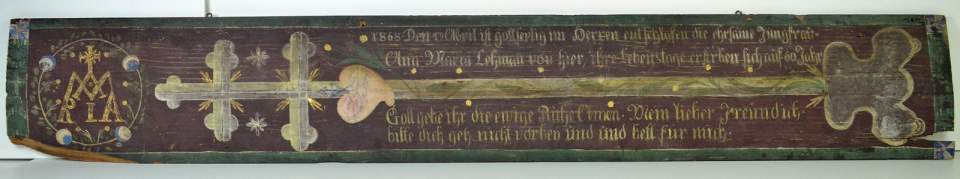 MARIA
1868 Den 5 Abril ist gottselig im Herren entschlafen die ehrsame Jungfrau
Ana Maria Lehman von hier, ihre Lebenstage erstrken sich auf 60 Jahr
Gott gebe ihr die ewige Ruhe! Amen. Mein lieber Freund ich
bitte dich geh nicht vorbey und und bett für mich.